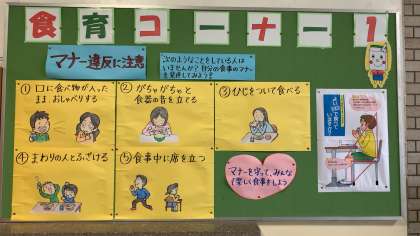 食育コーナー1
マナー違反に注意
次のようなことをしている人は
いませんか？自分の食事のマナー
を見直してみよう！
① 口に食べ物が入った
まま おしゃべりする
② がちゃがちゃと
食器の音を立てる
③ ひじをついて食べる
④ まわりの人とふざける
⑤ 食事中に席を立つ
マナーを守って、みんな
で楽しく食事をしよう